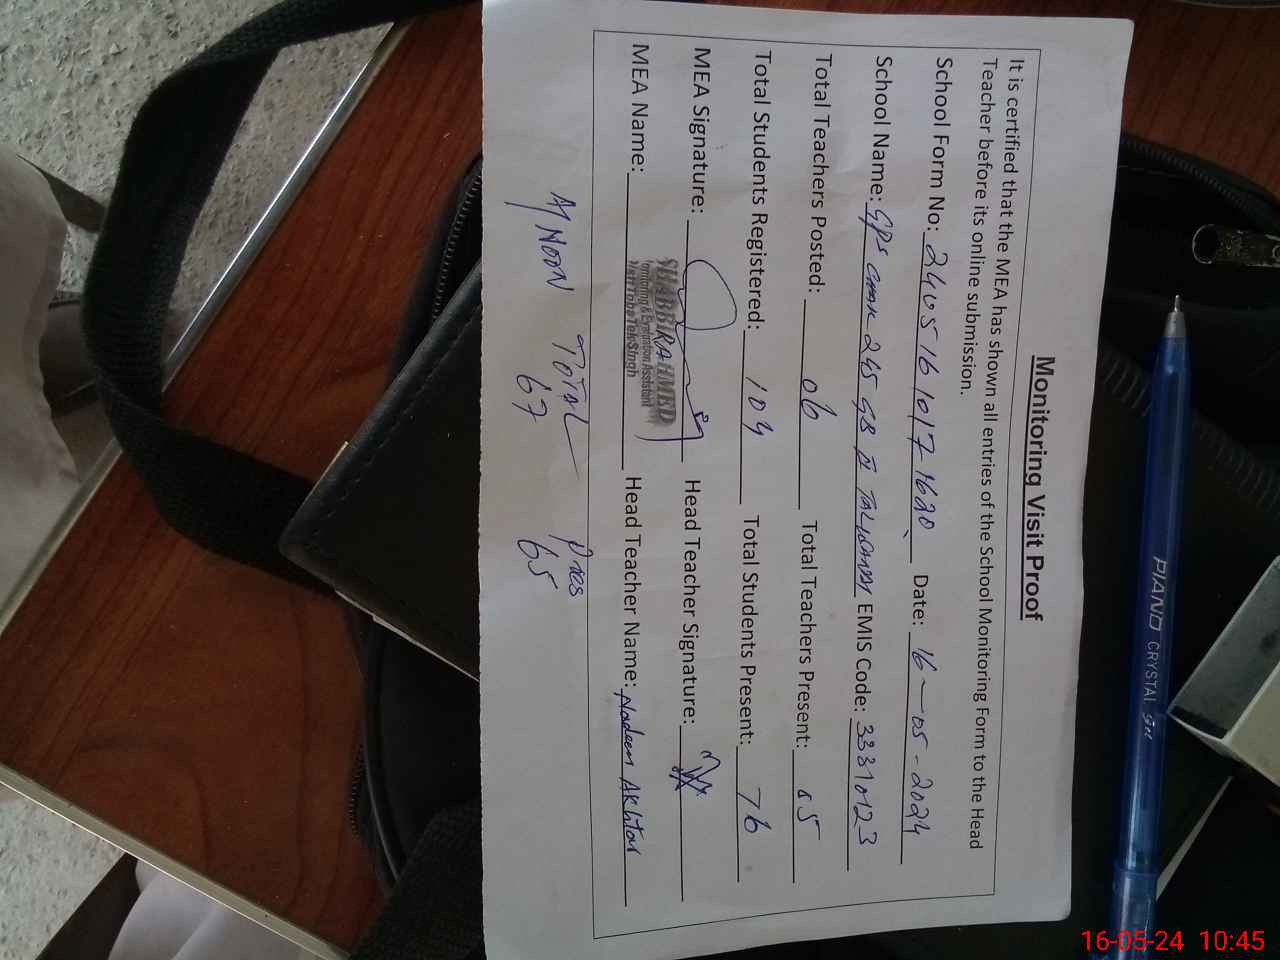 Monitoring Visit Proof
It is certified that the MEA has shown all entries of the School Monitoring Form to the Head
Teacher before its online submission.
School Form No: 2405161017-1620 Date: 16-05-2024
School Name: GPS 245 GB EMIS Code: 33310123
Total Teachers Posted: 06 Total Teachers Present: 05
Total Students Registered: 104 Total Students Present: 76
MEA Signature: Head Teacher Signature:
MEA Name: SHABBIR AHMED Head Teacher Name: Nadeem Akhtar
Monitoring & Evaluation Assistant
Distt Toba Tek Singh
A/NOON TOTAL Pres
67 65
PIANO CRYSTAL gel
16-05-24 10:45